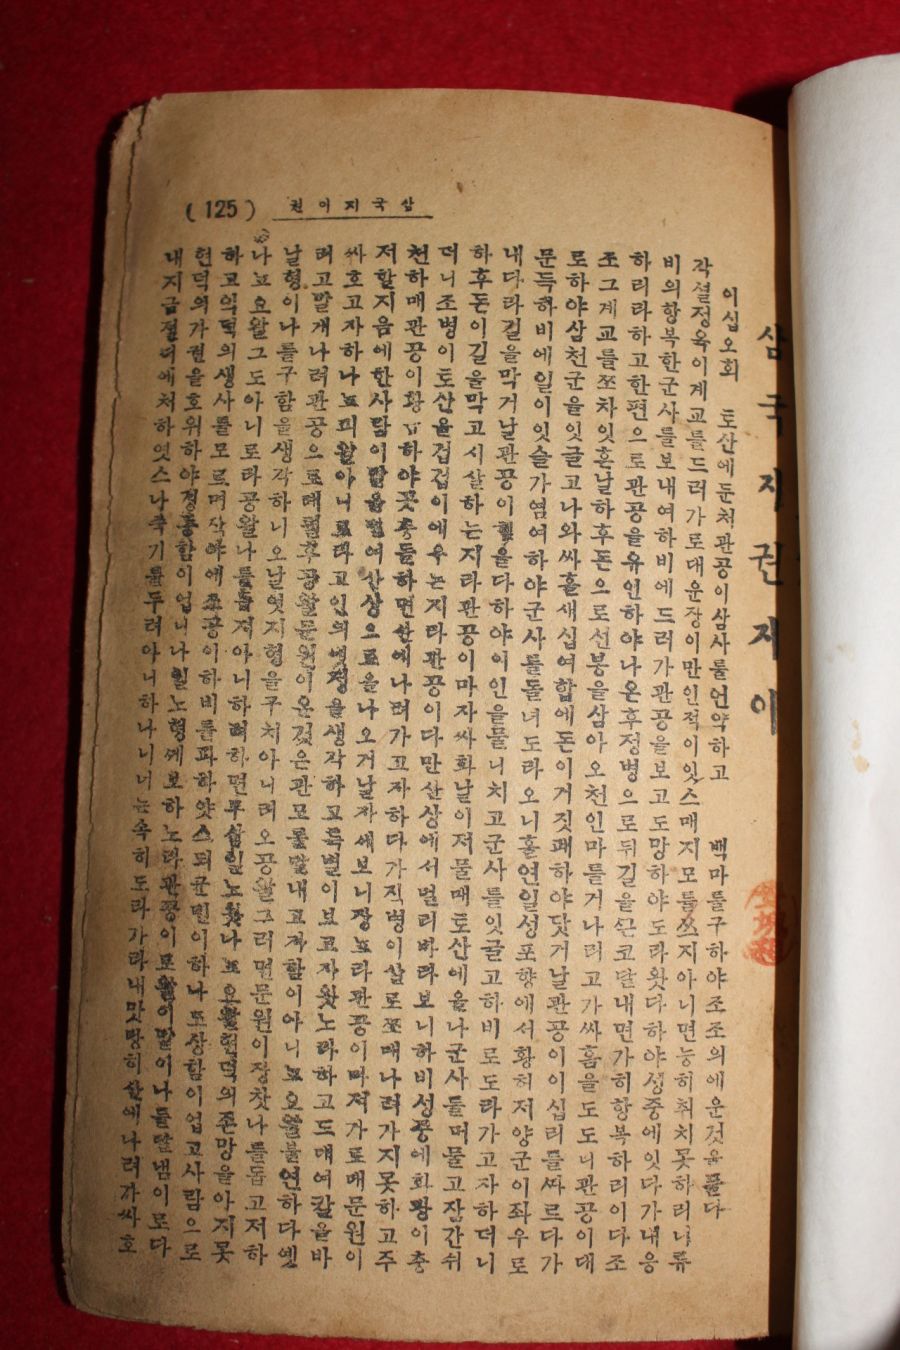 삼국지권지이
이십오회 토산에둔처관공이삼사룰언약하고 백마를구하야조조의에운것을풀다
각셜졍욱이계교를드러가로대운장이만인적이잇스매지모를쓰지아니면능히취치못하리니류
비의항복한군사를보내여하비에드러가관공을보고도망하야도라왓다하야셩중에잇다가내응
하리라하고한편으로관공을유인하야나온후정병으로뒤길을끈코달내면가히항복하리이다조
조그계교를쪼차잇흔날하후돈으로선봉을삼아오천인마를거나려고가싸홈을도도니관공이대
로하야삼천군을잇글고나와싸홀새십여합에돈이거짓패하야닷거날관공이이십리를따르다가
문득하비에일이잇슬가염여하야군사를돌녀도라오니홀연일성포향에서황허저양군이좌우로
내다라길을막거날관공이힘을다하야이인을물니치고군사를잇글고하비로도라가고자하더니
하후돈이길을막고시살하는지라관공이마자싸화날이저물매토산에올나군사를머물고잠간쉬
더니조병이토산을겁겁이에우는지라관공이다만산상에서멀리바라보니하비성중에화광이충
천하매관공이황 하야꼿충돌하면산에나려가고자하다가적병이살로쏘매나려가지못하고주
저할지음에한사람이말을달여산상으로올나오거날자세보니장뇨라관공이마저가로대문원이
싸호고자하나뇨왈아니로라고인의녯졍을생각하고특별이보고자왓노라하고드대여칼을바
려고말게나려관공으로례필후공왈문원이온것은관모를달내고저함이아니뇨요왈불연하다녯
날형이나를구함을생각하니오날엇지형을구치아니려오공왈그러면문원이장찻나를돕고저하
나뇨요왈그도아니로라공왈나를돕지아니하려하면무삼일노왓나뇨요왈현덕의존망을아지못
하고익덕의생사를모르며작야에조공이하비를파하얏스되군민이하나도상함이업고사람으로
현덕의가권을호위하야경동함이업나니일노형께보하노라관공이로왈이말이나를달냄이로다
내지금절디에처하엿스나죽기를두려아니하나니너는속히도라가라내맛당히산에나려가싸호
삼국지이권
(125)